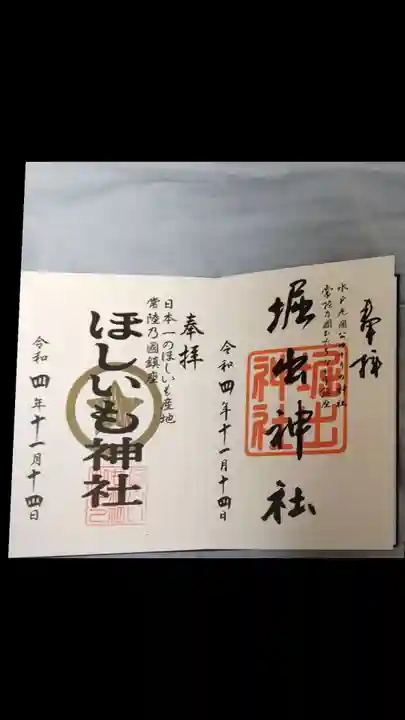 奉拝
水戸光圀公ゆかりの神社
常陸乃國
堀出神社
堀出神社
令和四年十一月十四日
奉拝
日本一のほしいも産地
常陸乃國鎮座
ほしいも神社
令和四年十一月十四日